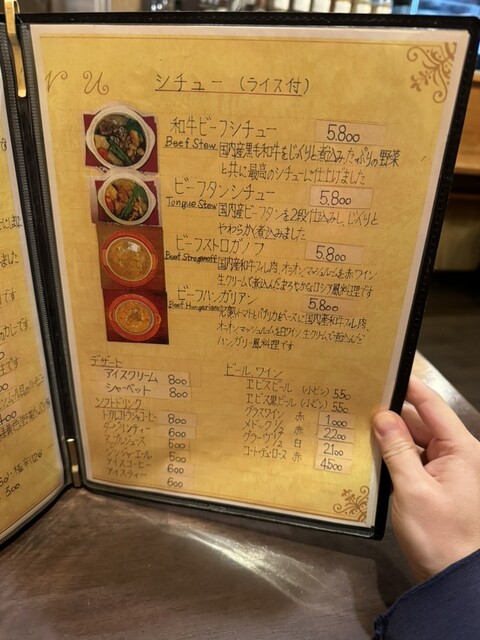 シチュー (ライス付)
和牛ビーフシチュー 5,800
Beef Stew 国内産黒毛和牛をじっくりと煮込みたっぷりの野菜
と共に最高のシチューに仕上げました
ビーフタンシチュー 5,800
Tongue Stew 国内産ビーフタンを2段仕込みし、じっくりと
やわらかく煮込みました
ビーフストロガノフ 5,800
Beef Stroganoff 国内産和牛フィレ肉、オニオン、マッシュルームを赤ワイン
生クリームで煮込んだまろやかなロシア風料理です
ビーフハンガリアン 5,800
Beef Hungarian トマトとパプリカをベースに国内産和牛フィレ肉、
オニオン、マッシュルームを白ワイン 生クリームで煮込んだ
ハンガリー風料理です
デザート
アイスクリーム 800
シャーベット 800
ソフトドリンク
800
ダージリンティー 600
500
ジンジャエール 500
アイスコーヒー 600
アイスティー 600
ビール、ワイン
エビスビール (小ビン) 550
エビス黒ビール (小ビン) 550
グラスワイン 赤 1,000
メドック 赤 2200
白 2100
コートデュローヌ 赤 4500